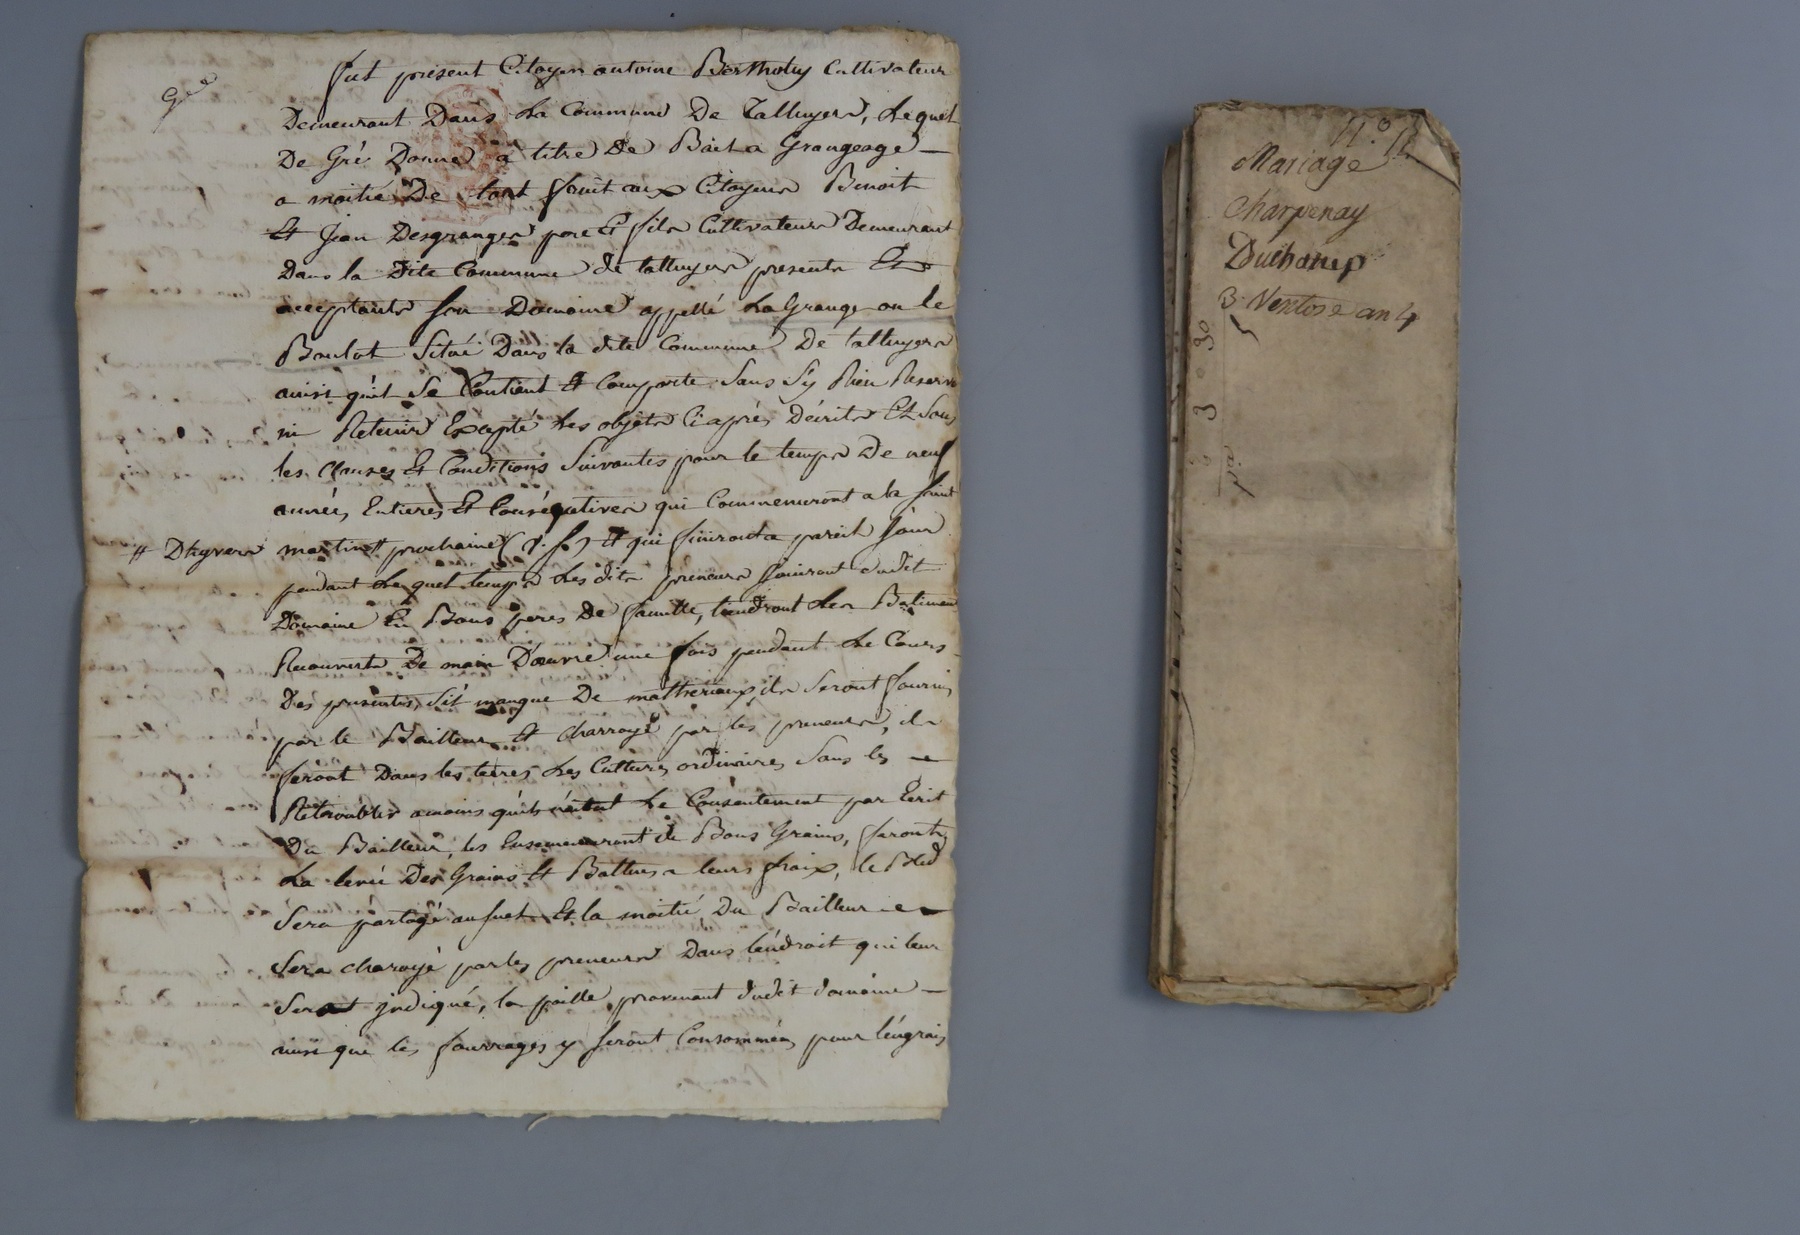 Gée
fut présent Citoyen antoine Bertholey Cultivateur
Demeurant Dans La Commune De Talluyers, Lequel
De Gré Donne a titre De Bail a Grangeage
a moitié De tout fruit aux Citoyens Benoit
Et Jean Desgranges pere Et fils Cultivateurs Demeurant
Dans la Dite Commune de talluyers presents Et
acceptants son Domaine appellé La Grange ou le
Boulot Situé Dans la dite Commune De talluyers
ainsi qu'il Se Contient Et Comporte Sans S'y Rien Reserver
ni Retenir Excepté Les objets Ci après Décrits Et Sous
les Clauses Et Conditions Suivantes pour le temps De neuf
années Entieres Et Conséqutives qui Commenceront a la saint
# D'hyver martin # prochaine (v. s.) Et qui finiront a pareil Jour
pendant Lequel temps Les dits preneurs Jouiront dudit
Domaine En Bons peres De famille, tiendront Les Batiments
Recouverts De main D'œuvre une fois pendant Le Cours
Des presentes, S'il manque De mattheriaux ils Seront fournis
par le Bailleur Et Charroyé par les preneurs, ils
feront Dans les terres Les Cultures ordinaires Sans les
Retroubler amoins qu'ils n'ait Le Consentement par Ecrit
Du Bailleur, les Ensemenceront de Bons Grains, feront
La levée Des Grains Et Battus a leurs fraix, le Bled
Sera partagé au suel Et la moitié Du Bailleur
Sera charoyé par les preneurs Dans l'endroit qui leur
Serat jndiqué, la paille provenant dudit domaine
ainsi que les fourrages y seront Consommées pour l'engrais
N.° 12
Mariage
Charpenay
Duchamp
3 Ventose an 4
3 . 30